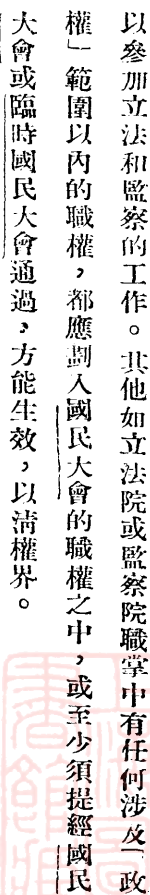 以參加立法和監察的工作。其他如立法院或監察院職掌中有任何涉及「政
權」範圍以內的職權，都應劃入國民大會的職權之中，或至少須提經國民
大會或臨時國民大會通過，方能生效，以淸權界。